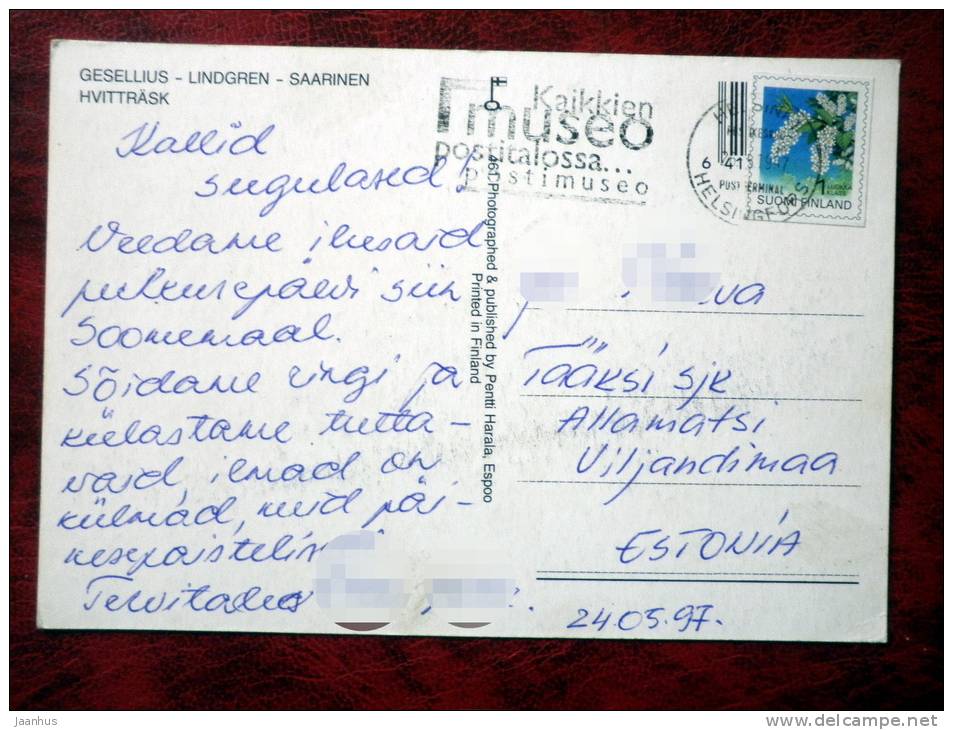 GESELLIUS - LINDGREN - SAARINEN
HVITTRÄSK
Kallid
sugulased!
Veedame ilusaid
puhkusepäevi siin
Soomemaal.
Sõidame ringi ja
külastame tutta-
vaid, ilmad on
külmad, kuid päi-
kesepaistelised
Tervitades
461 Photographed & published by Pentti Harala, Espoo
Printed in Finland
Kaikkien
museo
postitalossa...
postimuseo
HELSINKI
HELSINGFORS
POSTTERMINAL
1 LUOKKA
KLASS
SUOMI FINLAND
Tääksi sjk
Allamatsi
Viljandimaa
ESTONIA
24.05.97.
jaanhus
www.delcampe.net